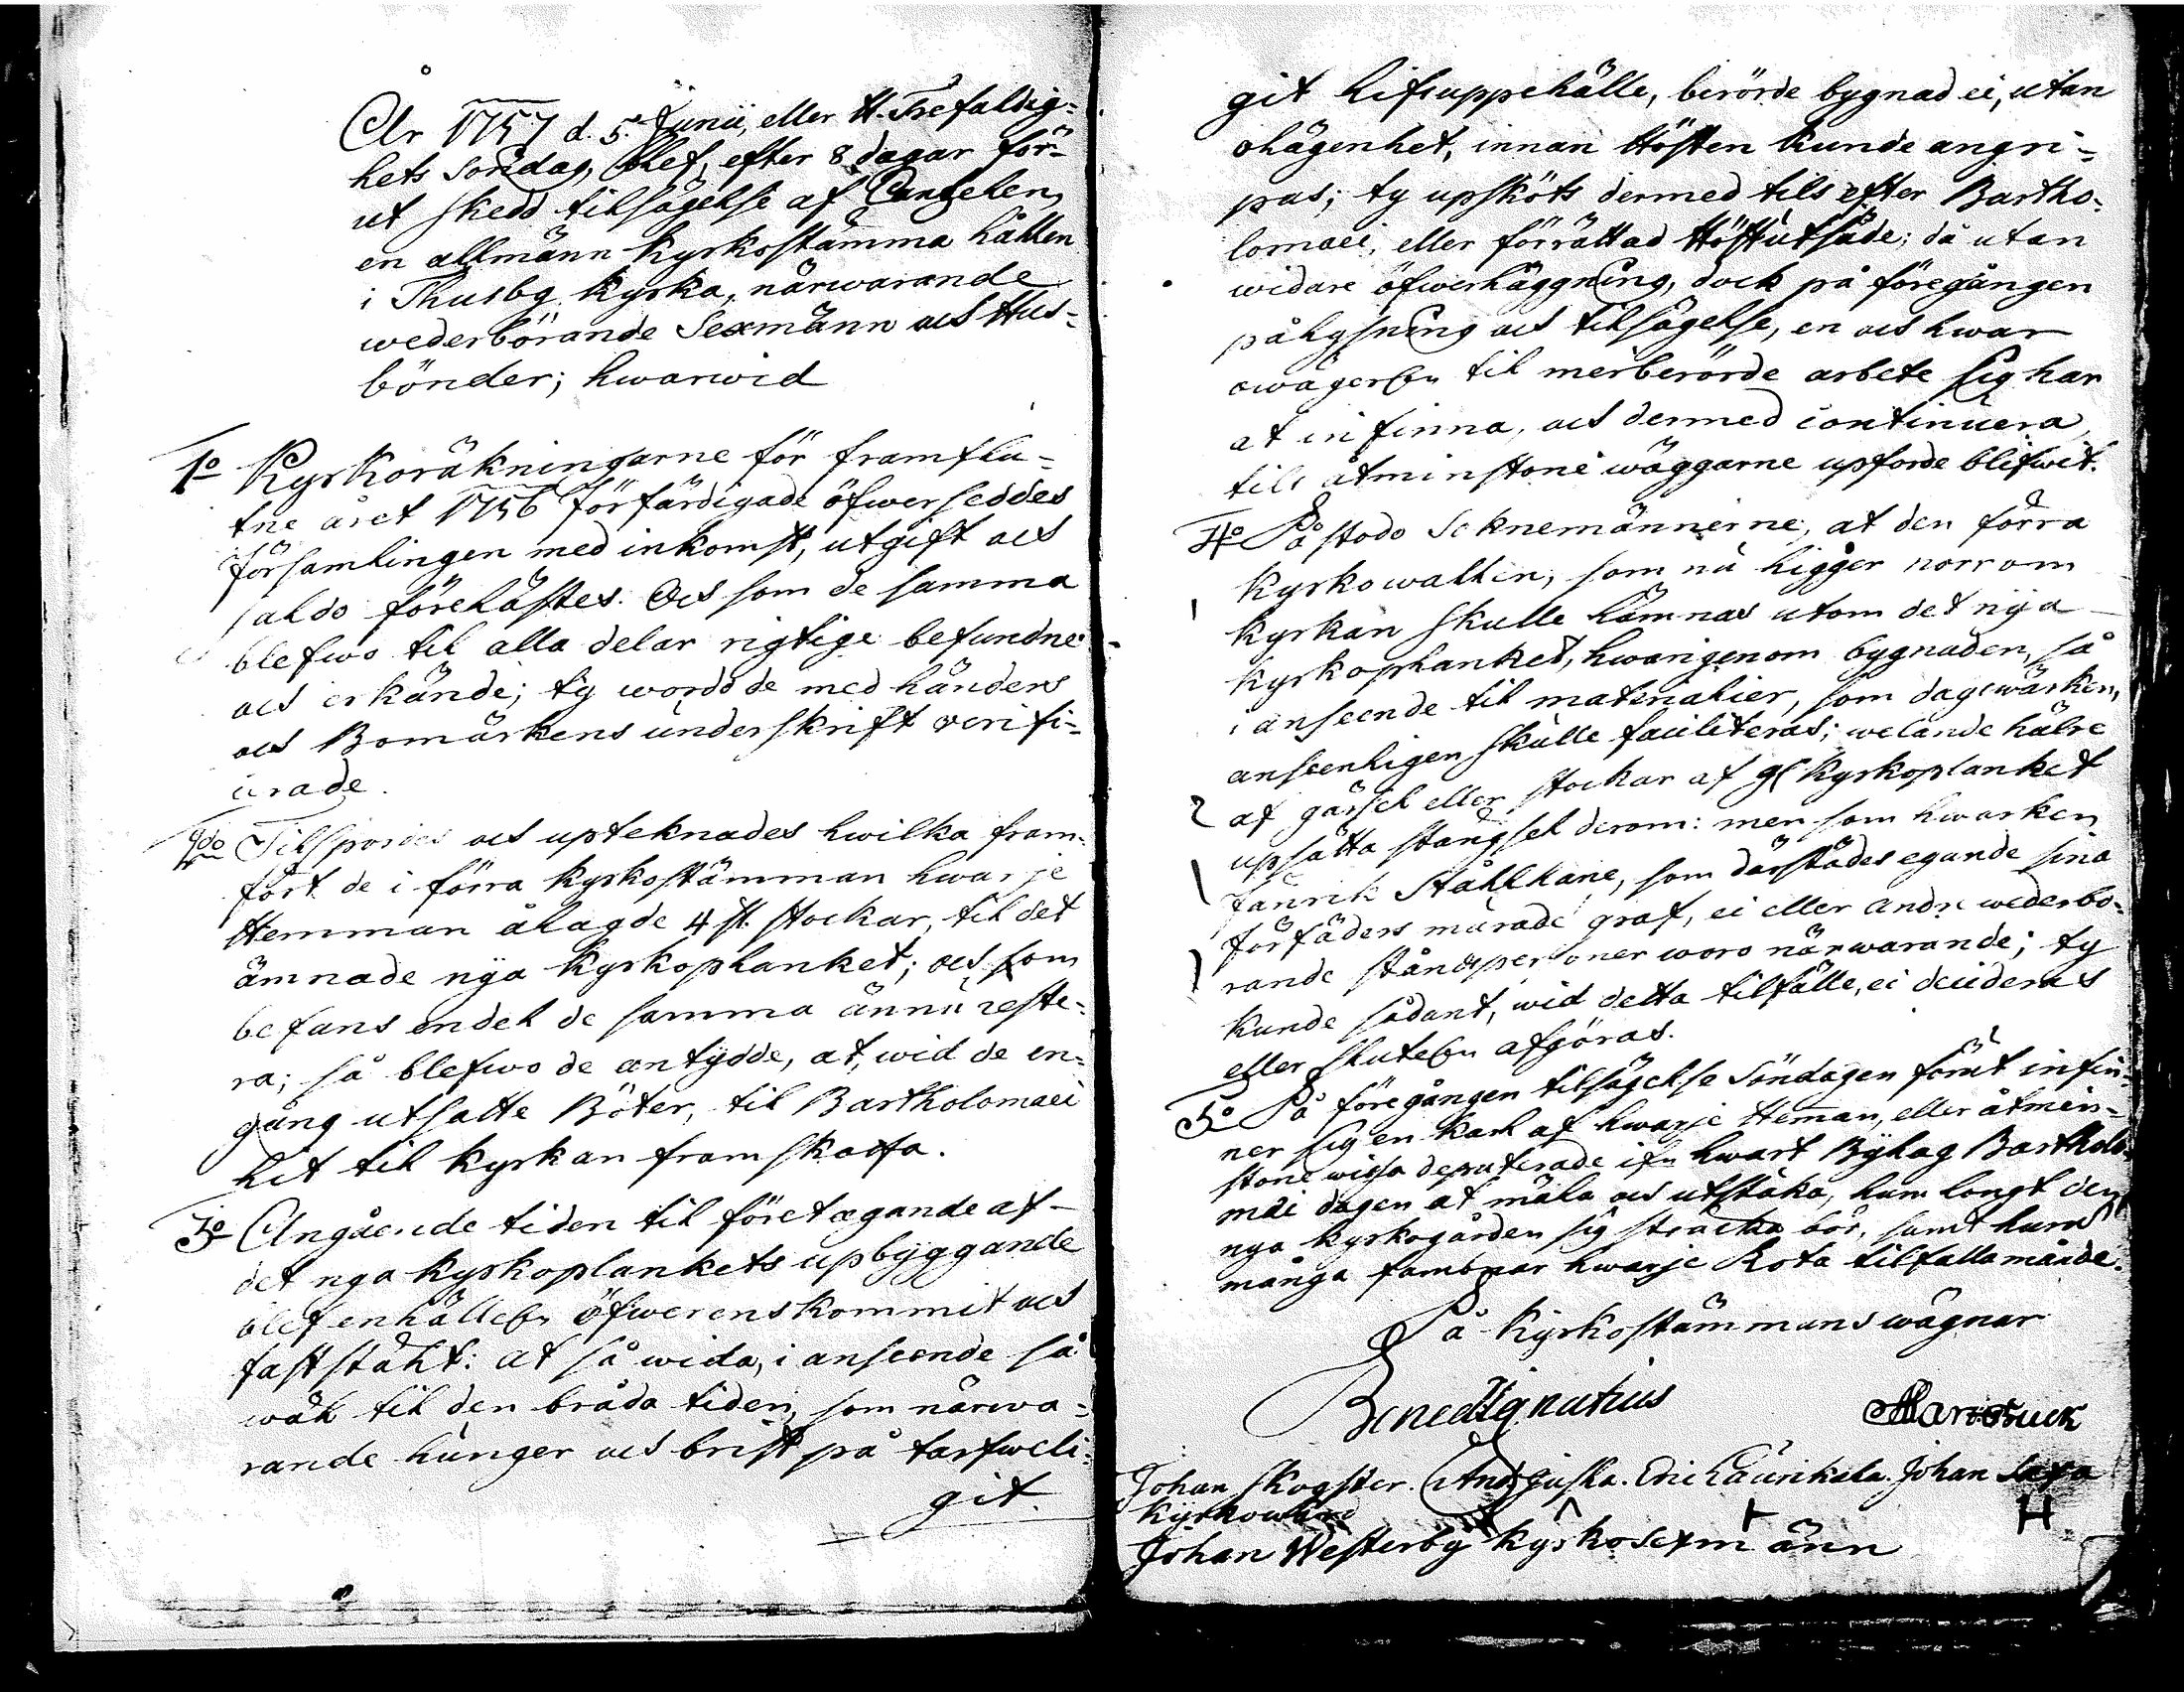 År 1757 d. 5. Junii, eller H. Trefaldig-
hets Söndag, blef, efter 8 dagar för-
ut skedd tilsägelse af Cantzelen,
en allmänn kyrkostämma hållen
i Thusby kyrka, närwarande
wederbörande Sexmänn och Hus-
bönder; hwarwid
1o Kyrkoräkningarne för framflu-
tne året 1756 förfärdigade öfwerseddes
församlingen med inkomst, utgift och
saldo förelästes. Och som de samma
blefwo til alla delar rigtige befundne
och erkände; ty wordo de med händers
och Bomärkens underskrift verifi-
cerade.
2do Tilspordes och upteknades hwilka fram-
fört de i förra kyrkostämman hwarje
Hemman ålagde 4 st. stockar, til det
ämnade nya kyrkoplanket; och som
befans endel de samma ännu reste-
ra; så blefwo de antydde, at, wid de en-
gång utsatte Böter, til Bartholomaei
hit til kyrkan framskaffa.
3o Angående tiden til företagande af
det nya kyrkoplankets upbyggande
blef enhälleln öfwerenskommit och
fastställt: at så wida, i anseende så
wäl til den bråda tiden, som närwa-
rande hunger och brist på tarfweli-
git.
git lifsuppehälle, berörde bygnad ei, utan
olägenhet, innan Hösten kunde angri-
pas; ty upsköts dermed tils efter Bartho-
lomaei, eller förrättad Höstutsäde; då utan
widare öfwerläggning, dock på föregången
pålysning och tilsägelse, en och hwar
owägerln til merberörde arbete sig har
at infinna, och dermed continuera,
tils åtminstone wäggarne upförde blifwit.
4o Påstodo Soknemännerne, at den förra
kyrkowallen, som nu ligger norrom
kyrkan skulle lämnas utom det nya
kyrkoplanket, hwarigenom bygnaden, så
i anseende til materialier, som dagswärken,
anseenligen skulle faciliteras; welande hälre
af gärsel eller stockar af gl kyrkoplanket
upsätta stängsel derom: men som hwarken
fänrik Stålhane, som därstädes egande sina
förfäders murade graf, ei eller andre wederbö-
rande ståndspersoner woro närwarande; ty
kunde sådant, wid detta tilfälle, ei decideras
eller sluteln afgöras.
5o På föregången tilsägelse Söndagen förut infin-
ner sig en karl af hwarje Heman, eller åtmin-
stone wissa deputerade ifrn hwart Bylag Bartholo-
mäi dagen at mäla och utstaka, huru longt den
nya kyrkogården sig sträcka bör, samt huru
många famnar hwarje Rota tilfalla månde.
På Kyrkostämmans wägnar
Bened Ignatius
Johan Skogster. And. Juska. Eric Laurikala. Johan Saxa
kyrkowärd
H
Johan Westerby kyrkosexmänn